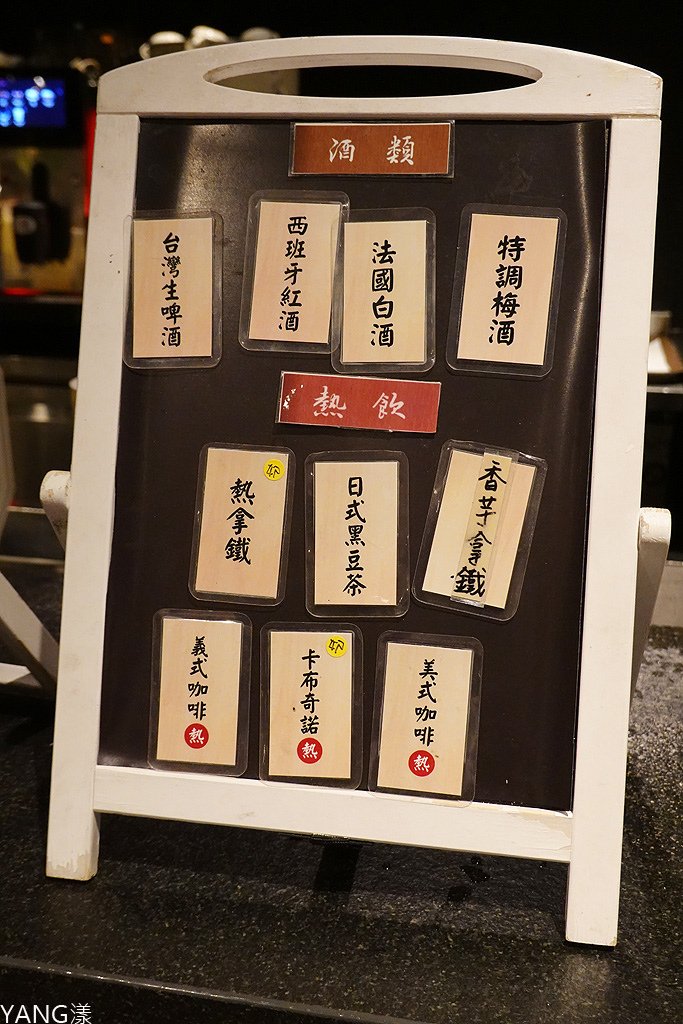 酒類
台灣生啤酒
西班牙紅酒
法國白酒
特調梅酒
熱飲
熱拿鐵
日式黑豆茶
香芋拿鐵
義式咖啡
熱
卡布奇諾
熱
美式咖啡
熱
YANG漾